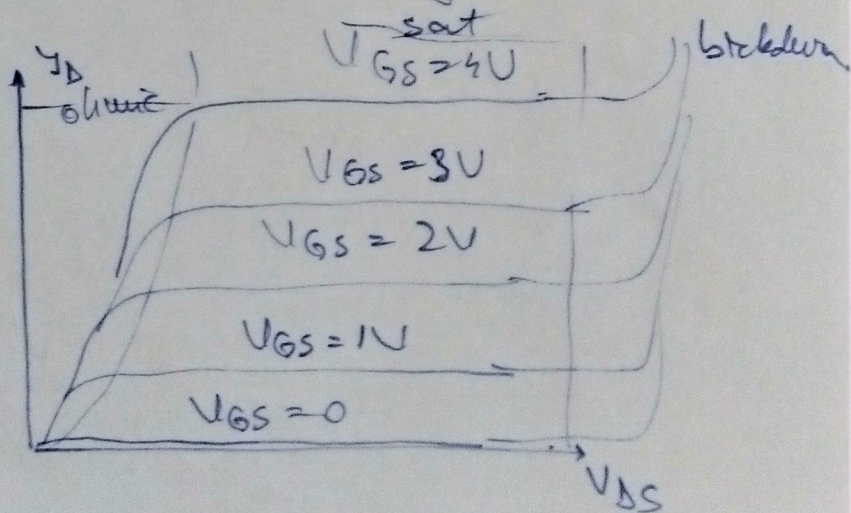 sat
I_D
ohmic
V_GS = 4V
brekdown
V_GS = 3V
V_GS = 2V
V_GS = 1V
V_GS = 0
V_DS